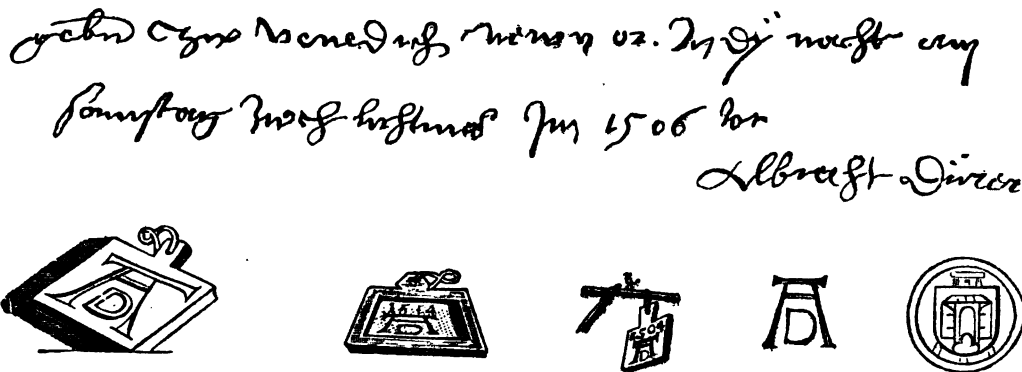 gebn Czw Venedich Newn or. In dÿ nacht am
samstag nach lichtmes Im 1506 Jor
Albrecht Dürer
AD
1514 AD
1504 AD
AD